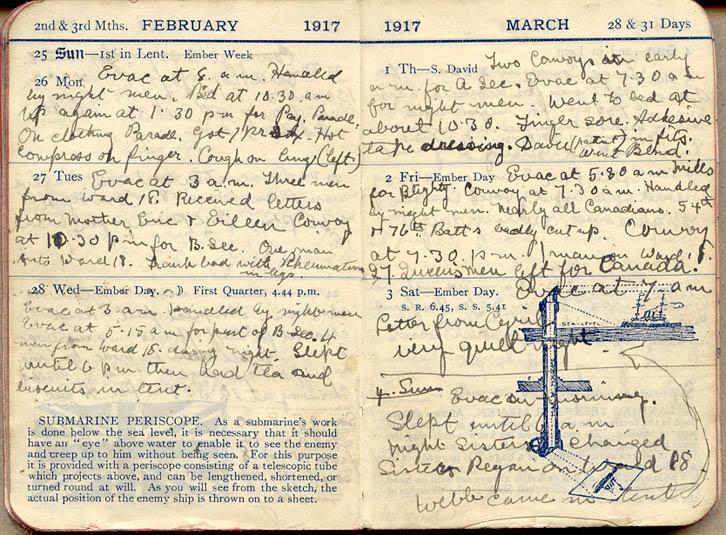 2nd & 3rd Mths. FEBRUARY 1917
25 Sun—1st in Lent. Ember Week
26 Mon Evac at 6. a.m. Handled
by night men. Bed at 10.30 am
up again at 1.30 pm for Pay Parade.
On clothing Parade. Got 1 pr Hot
compress on finger. Cough on lung (left)
27 Tues Evac at 3 a.m. Three men
from ward 18. Received letters
from Mother Eric & Eileen Convoy
at 10.30 pm for B. Sec. One man
into Ward 18. Frank bad with Rheumatism
in legs.
28 Wed—Ember Day. ☽ First Quarter, 4.44 p.m.
Evac at 3 am. Handled by nightmen
Evac at 5.15 am for part of B Sec. 4
men from ward 18. during night. Slept
until 6 pm then had tea and
biscuits in tent.
SUBMARINE PERISCOPE. As a submarine's work
is done below the sea level, it is necessary that it should
have an "eye" above water to enable it to see the enemy
and creep up to him without being seen. For this purpose
it is provided with a periscope consisting of a telescopic tube
which projects above, and can be lengthened, shortened, or
turned round at will. As you will see from the sketch, the
actual position of the enemy ship is thrown on to a sheet.
1917 MARCH 28 & 31 Days
1 Th—S. David Two Convoys in early
a.m. for A Sec. Evac at 7.30 am
for night men. Went to bed at
about 10.30. Finger sore. Adhesive
tape dressing. David (patient) in fits.
went Blind.
2 Fri—Ember Day Evac at 5.30 am Mills
for Blighty. Convoy at 7.30 am. Handled
by night men. Nearly all Canadians. 54th
& 76th Batt's badly cut up. Convoy
at 7.30 p.m. 1 man on Ward 18
27 Queensmen left for Canada.
3 Sat—Ember Day. Evac at 7 am
S. R. 6.45, S. S. 5.41
Letter from Cyril
very quiet night
SEA LEVEL
4. Sun Evac in morning.
Slept until a.m.
Night Sisters changed
Sister Regan on Ward 18.
Webb came in tent